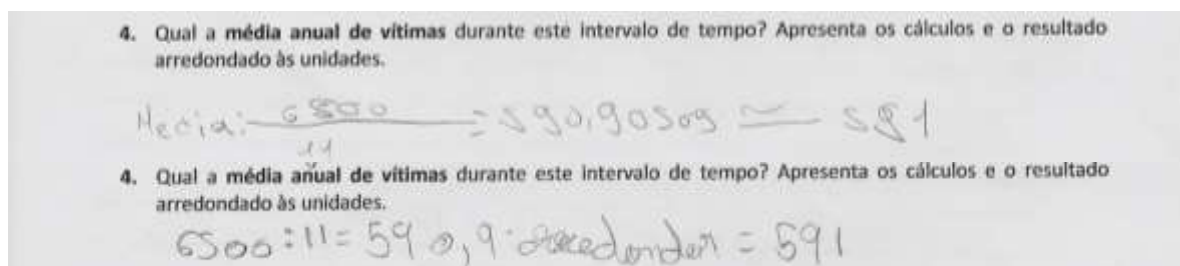 4. Qual a média anual de vítimas durante este intervalo de tempo? Apresenta os cálculos e o resultado
arredondado às unidades.
Media: 6500
= 590,90909 ≃ 591
11
4. Qual a média anual de vítimas durante este intervalo de tempo? Apresenta os cálculos e o resultado
arredondado às unidades.
6500 : 11 = 590,9 = 591